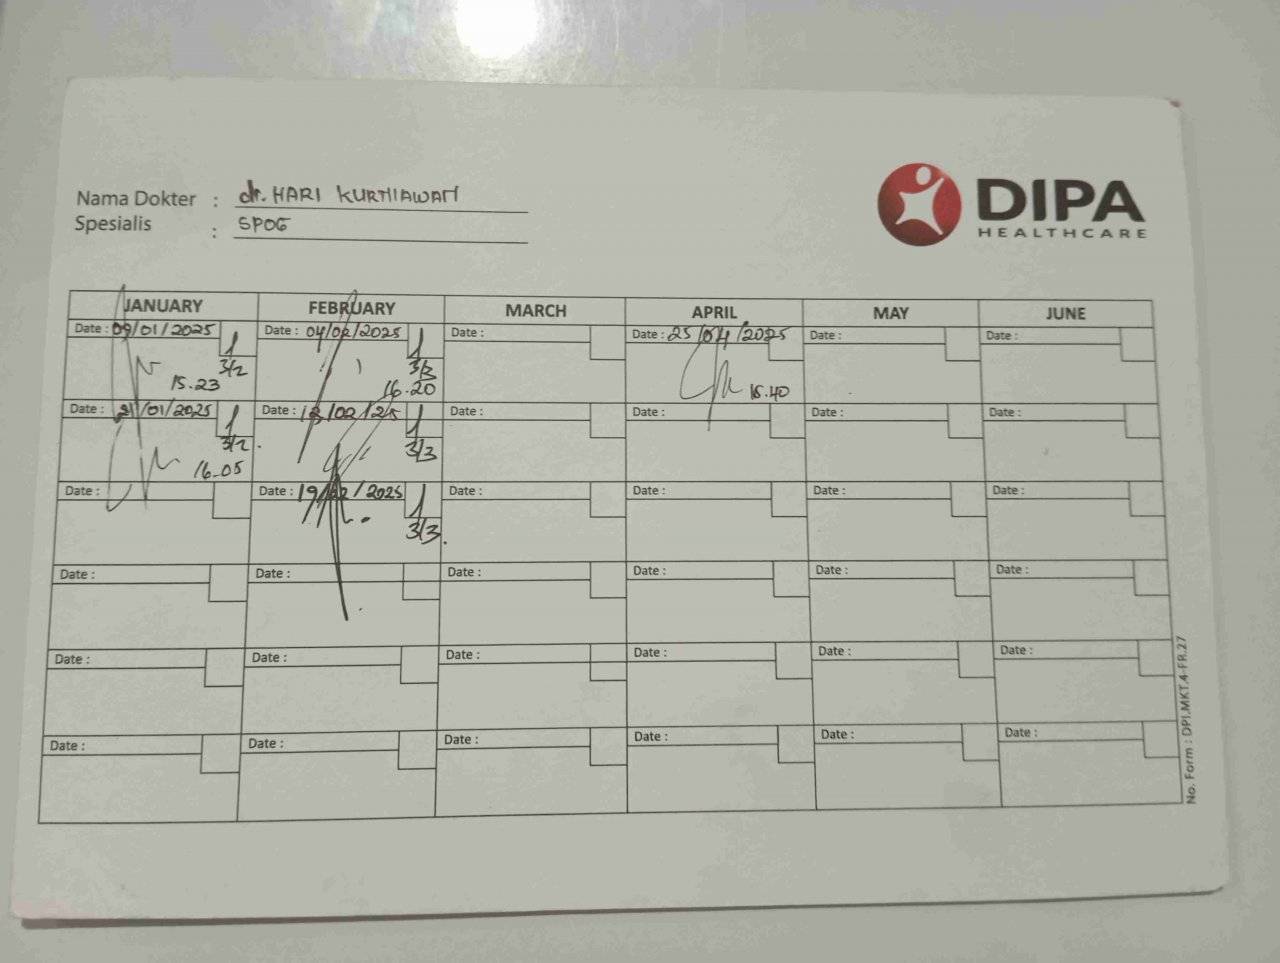 Nama Dokter : dr. HARI KURNIAWAN
Spesialis : SPOG
DIPA
HEALTHCARE
JANUARY FEBRUARY MARCH APRIL MAY JUNE
Date : 09/01/2025 Date : 04/02/2025 Date : Date : 25/04/2025 Date : Date :
3/2 3/3
15.23 16.20 15.40
Date : 21/01/2025 Date : 13/02/25 Date : Date : Date : Date :
3/2. 3/3
16.05
Date : Date : 19/02/2025 Date : Date : Date : Date :
3/3.
Date : Date : Date : Date : Date : Date :
Date : Date : Date : Date : Date : Date :
Date : Date : Date : Date : Date : Date :
No. Form : DPI.MKT.4-FR.27